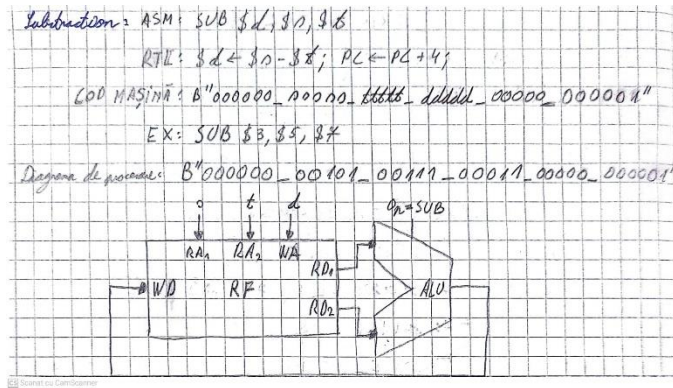 Subtraction: ASM: SUB $d, $s, $t
RTL: $d ← $s - $t; PC ← PC + 4;
COD MAȘINĂ: B"000000_sssss_ttttt_ddddd_00000_000001"
EX: SUB $3, $5, $7
Diagrama de procesare: B"000000_00101_00111_00011_00000_000001"
s t d
Op=SUB
RA1 RA2 WA
RD1
WD RF ALU
RD2
CS Scanat cu CamScanner